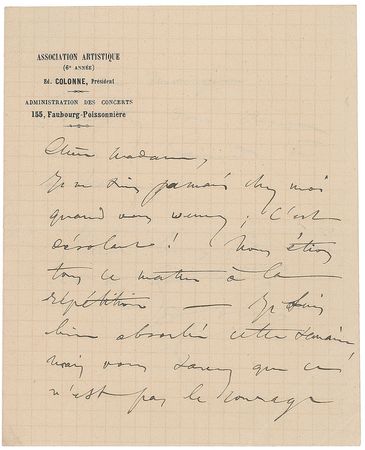 ASSOCIATION ARTISTIQUE
(6e ANNÉE)
Ed. COLONNE, Président
ADMINISTRATION DES CONCERTS
155, Faubourg-Poissonnière
Chère Madame,
Je ne suis jamais chez moi
quand vous venez ; c'est
désolant ! Nous étions
tous ce matin à la
répétition — Je suis
bien absorbé cette semaine,
mais vous savez que ce
n'est pas le courage